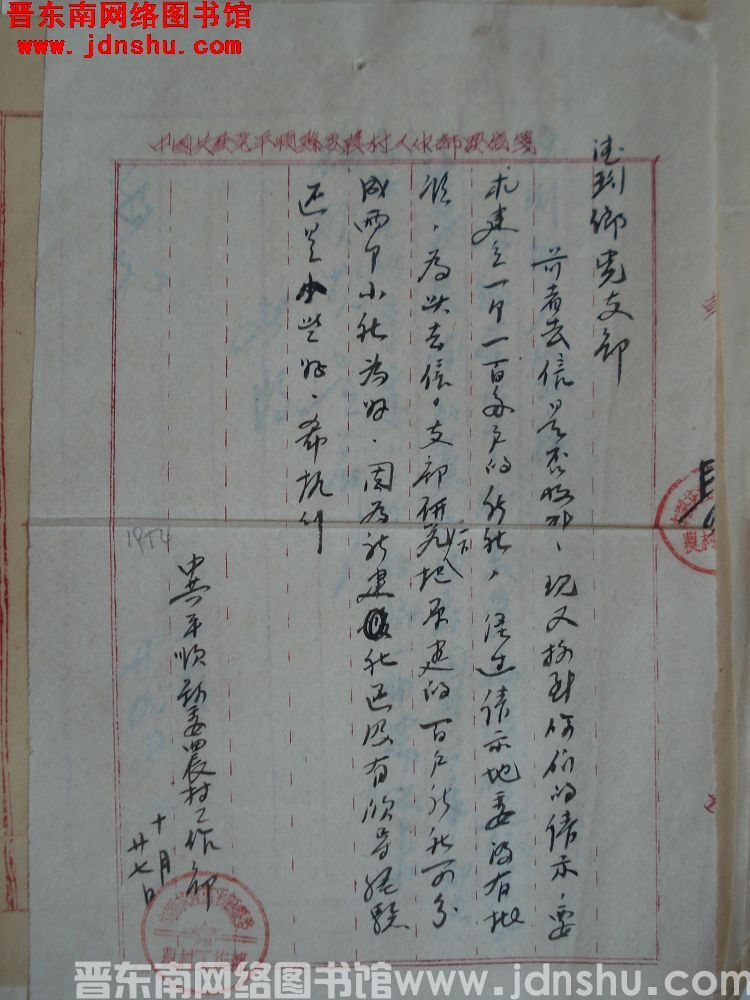 晋东南网络图书馆
www.jdnshu.com
中国共产党平顺县委农村工作部公用信笺
乡党支部
前者去信是否收到、现又接到你们的请示、要
求建立一个一百多户的新社，经过请示地委没有批
准，为此去信，支部研究后把原建的百户新社可分
成两个小社为好．因为新建社还没有领导经验
还是小些好．希执行
中共平顺县委農村工作部
十月
廿七日
1954
晋东南网络图书馆 www.jdnshu.com